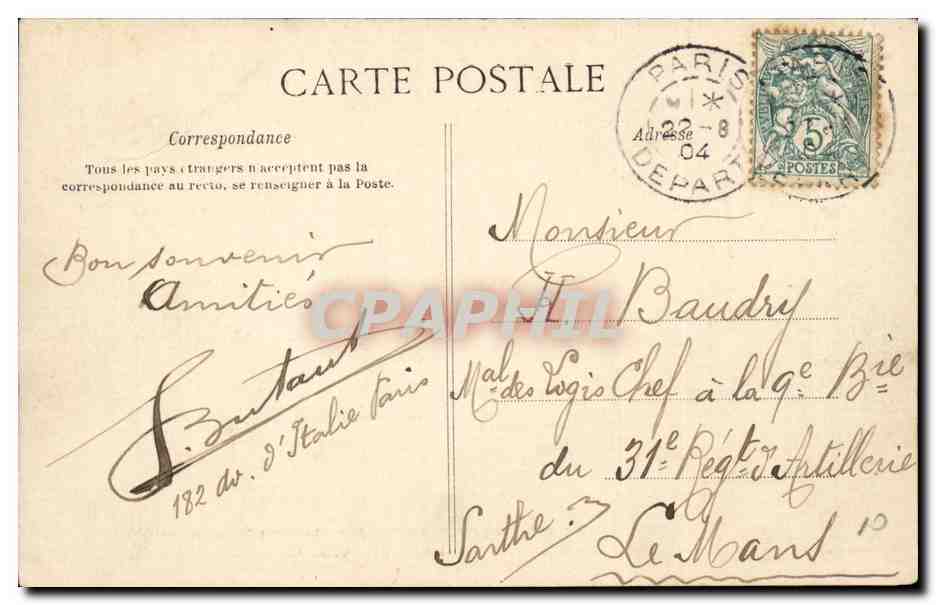 CARTE POSTALE
Correspondance
Tous les pays étrangers n'acceptent pas la
correspondance au recto, se renseigner à la Poste.
Bon souvenir
Amitiés
Butaut
182 av. d'Italie Paris
PARIS
22-8
04
DEPART
Adresse
5
POSTES
Monsieur
H. Baudry
Mal des Logis Chef à la 9e Bie
du 31e Régt d'Artillerie
Sarthe
Le Mans
10
CPAPHIL